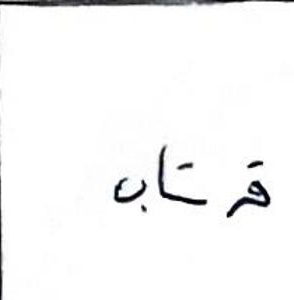 قرتاب